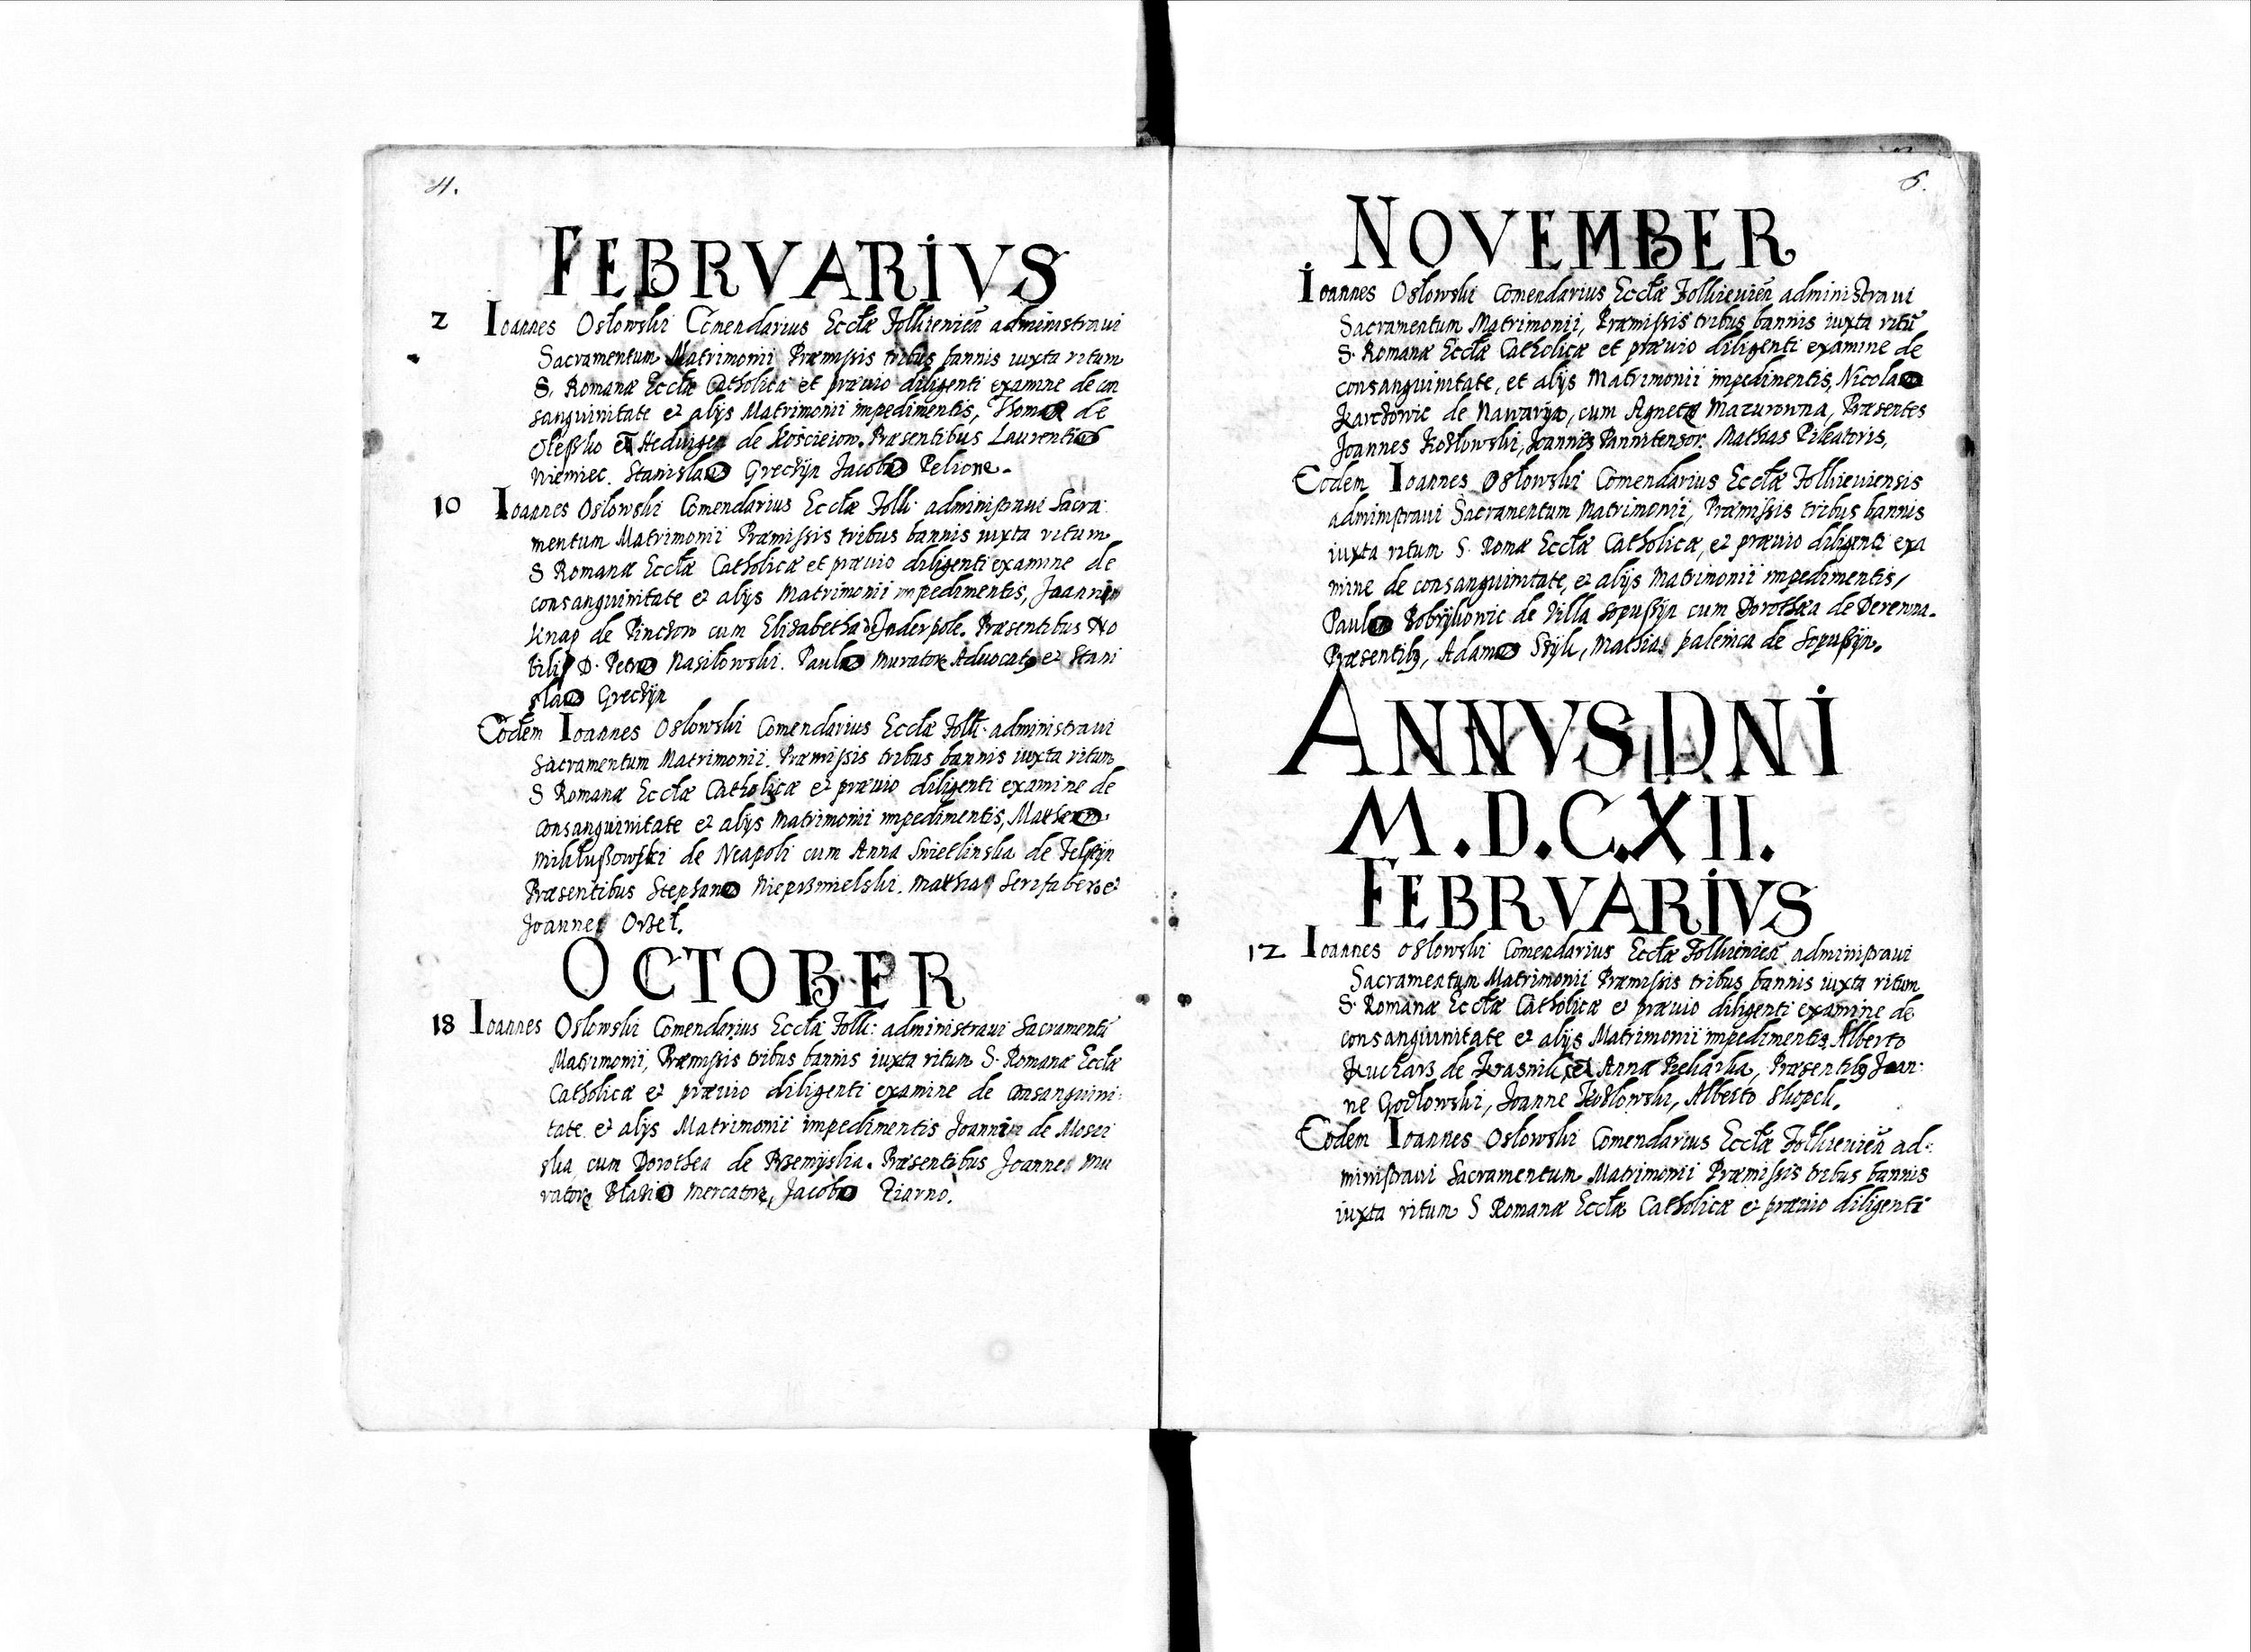 4.
FEBRVARIVS
2 Ioannes Osłowski Comendarius Ecctæ Zolkieuieñ administraui
Sacramentum Matrimonii Præmissis tribus bannis iuxta ritum
S. Romanæ Ecctæ Catholicæ et præuio diligenti examine de con
sanguinitate et alijs Matrimonii impedimentis, Thoma de
Oleßko et Heduigea de Kościeiow. Præsentibus Laurentio
Niemiec. Stanislao Grechijn Jacobo Pelione.
10 Ioannes Osłowski Comendarius Ecctæ Zolk: administraui Sacra:
mentum Matrimonii Præmissis tribus bannis iuxta ritum
S Romanæ Ecctæ Catholicæ et præuio diligenti examine de
consanguinitate et alijs Matrimonii impedimentis, Joanni
Knap de Pinchow cum Elisabetha de Inderpole. Præsentibus No
bili D. Petro Nasiłowski. Paulo Muratore Aduocato et Stani
slao Grechijn
Eodem Ioannes Osłowski Comendarius Ecctæ Zolk: administraui
Sacramentum Matrimonii. Præmissis tribus bannis iuxta ritum
S Romanæ Ecctæ Catholicæ et præuio diligenti examine de
consanguinitate et alijs Matrimonii impedimentis,
de Neapoli cum Anna Swietlinska de
Præsentibus Stephano Matthia Serifabero et
Joanne
OCTOBER
18 Ioannes Osłowski Comendarius Ecctæ Zolk: administraui Sacramentũ
Matrimonii, Præmissis tribus bannis iuxta ritum S. Romanæ Ecctæ
Catholicæ et præuio diligenti examine de consanguini:
tate et alijs Matrimonii impedimentis Joanni de Mosci
ska cum Dorothea de Przemyslia. Præsentibus Joanne Mu
ratore Błasio Mercatore, Jacobo Ziarno.
5.
NOVEMBER
Ioannes Osłowski Comendarius Ecctæ Zolkieuieñ administraui
Sacramentum Matrimonii, Præmissis tribus bannis iuxta ritũ
S. Romanæ Ecctæ Catholicæ et præuio diligenti examine de
consanguinitate, et alijs Matrimonii impedimentis, Nicolao
de Nawarija, cum Agnetæ Mazurowna, Præsentes
Joannes Kozłowski, Joannis Pannitensor. Mathias Pileatoris,
Eodem Ioannes Osłowski Comendarius Ecctæ Zolkieuiensis
administraui Sacramentum Matrimonii, Præmissis tribus bannis
iuxta ritum S. Romæ Ecctæ Catholicæ, et præuio diligenti exa
mine de consanguinitate, et alijs Matrimonii impedimentis,
Paulo Bobrijkowic de Villa Sopußijn cum Dorothæa de Derewna.
Præsentibꝫ, Adamo Szijk, Mathias palenica de Sopußijn.
ANNVS DNI
M.D.C.XII.
FEBRVARIVS
12 Ioannes Osłowski Comendarius Ecctæ Zolkieuieñ administraui
Sacramentum Matrimonii Præmissis tribus bannis iuxta ritum
S. Romanæ Ecctæ Catholicæ et præuio diligenti examine de
consanguinitate et alijs Matrimonii impedimentis, Alberto
Kucharz de et Anna Pekarka, Præsentibꝫ Joan:
ne Godłowski, Joanne Kozłowski, Alberto Skopek.
Eodem Ioannes Osłowski Comendarius Ecctæ Zolkieuieñ ad:
ministraui Sacramentum Matrimonii Præmissis tribus bannis
iuxta ritum S Romanæ Ecctæ Catholicæ et præuio diligenti